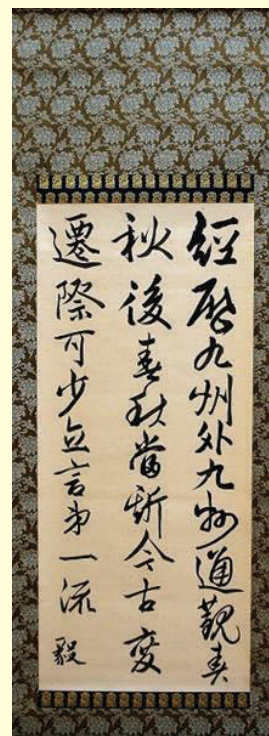 經歷九州外九州通觀春
秋後春秋當斯今古變
遷際可少立言第一流
毅